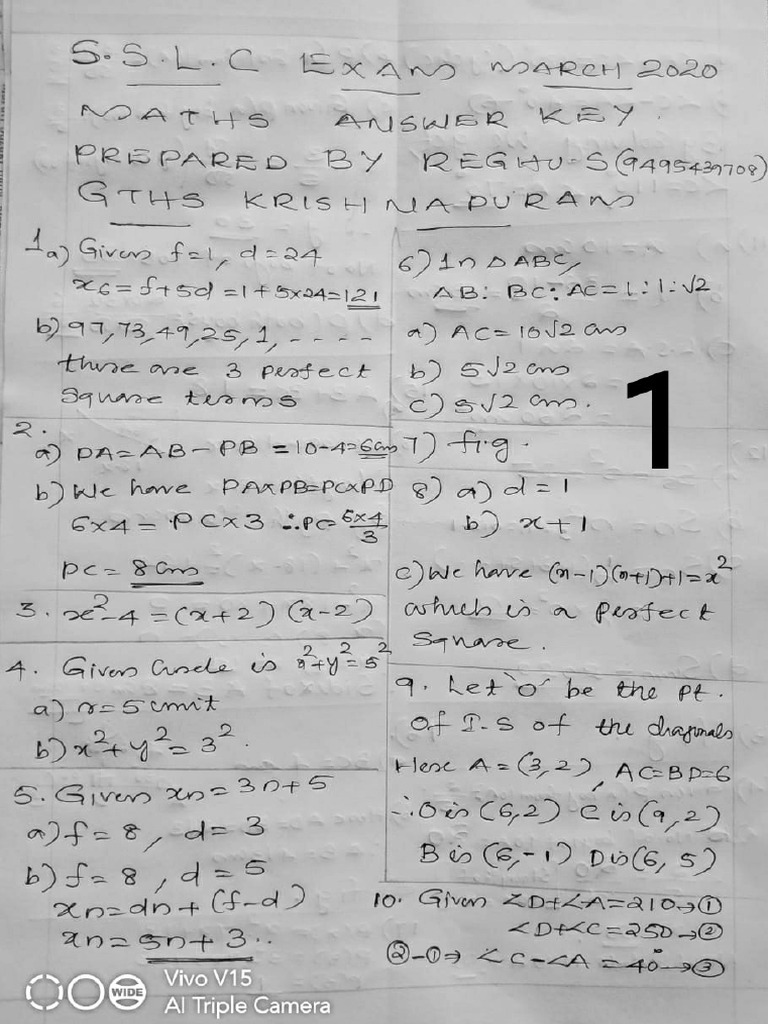 S.S.L.C EXAM MARCH 2020
MATHS ANSWER KEY.
PREPARED BY REGHU-S(9495439708)
GTHS KRISHNAPURAM
1a) Given f=1, d=24
x6=f+5d =1+5x24=121
b) 97,73,49,25,1, - - - -
there are 3 perfect
square terms
2.
a) PA=AB-PB =10-4=6cm
b) We have PAxPB=PCxPD
6x4= PCx3 ∴PC=6x4/3
PC= 8cm
3. x²-4=(x+2)(x-2)
4. Given circle is x²+y²=5²
a) r=5 unit
b) x²+y²=3².
5. Given xn=3n+5
a) f=8, d=3
b) f=8, d=5
xn=dn+(f-d)
xn=5n+3..
6) In ΔABC,
AB:BC:AC=1:1:√2
a) AC=10√2 cm
b) 5√2 cm
c) 5√2 cm.
7) fig.
8) a) d=1
b) x+1
c) We have (x-1)(x+1)+1=x²
which is a perfect
square.
9. Let 'o' be the pt.
of I.S of the diagonals
Here A=(3,2), AC=BD=6
∴O is (6,2) C is (9,2)
B is (6,-1) D is (6,5)
10. Given ∠D+∠A=210→①
∠D+∠C=250→②
②-①⇒ ∠C-∠A=40°→③
1
WIDE
Vivo V15
AI Triple Camera